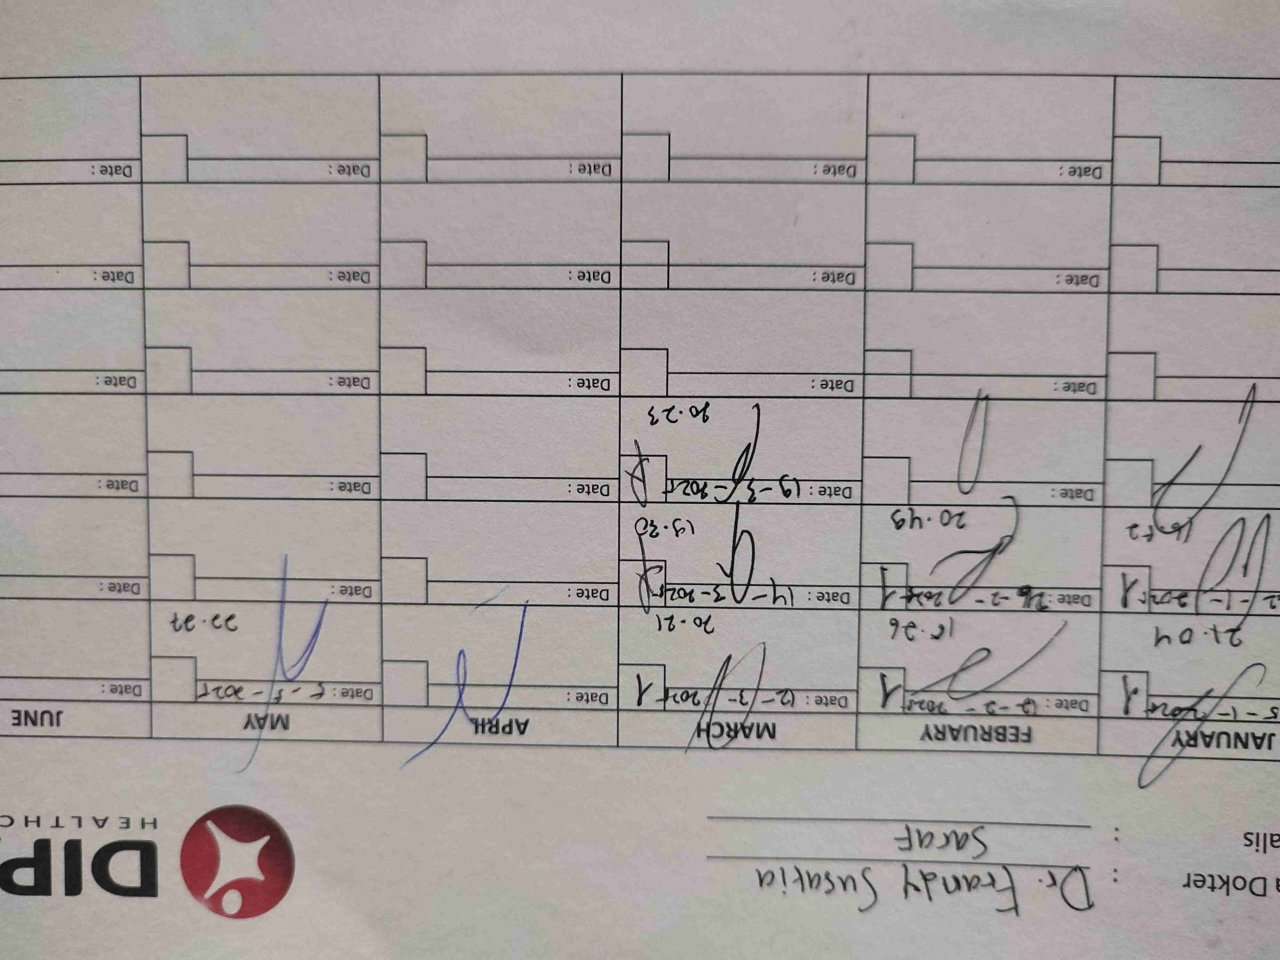 Dokter : Dr. Frandy Susatia
: Saraf
DIP
HEALTHC
JANUARY FEBRUARY MARCH APRIL MAY JUNE
5-1-2025 1 Date : 12-2-2025 1 Date : 12-3-2025 1 Date : Date : 5-5-2025 Date :
21.04 15.26 20.21 22.27
2-1-2025 1 Date : 26-2-2025 1 Date : 14-3-2025 Date : Date : Date :
20.49 19.30
Date : Date : 19-3-2025 Date : Date : Date :
20.23
Date : Date : Date : Date : Date :
Date : Date : Date : Date : Date :
Date : Date : Date : Date : Date :